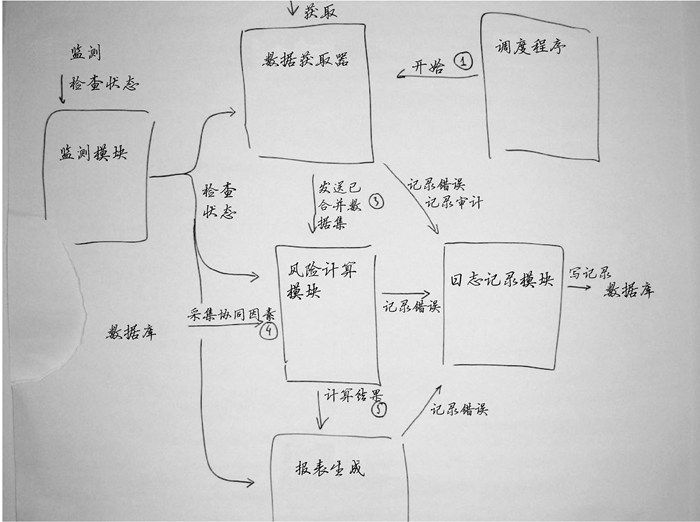 获取
监测
检查状态
数据获取器
调度程序
开始 ①
监测模块
检查
状态
发送已
合并数
据集
③
记录错误
记录审计
风险计算
模块
日志记录模块
写记录
数据库
记录错误
数据库
采集协同因素
④
计算结果
⑤
记录错误
报表生成